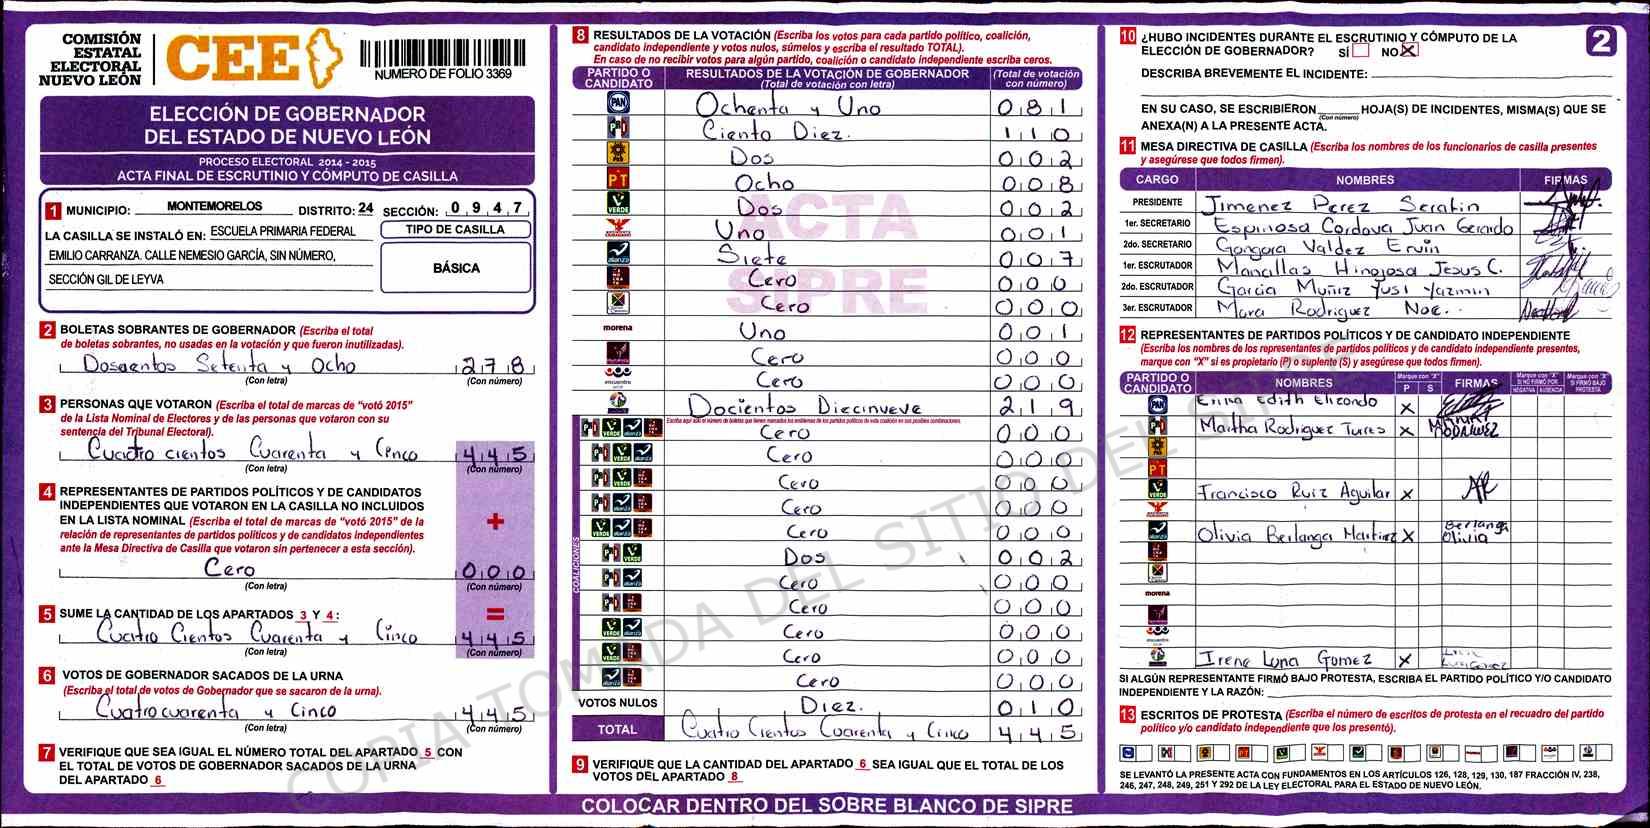 COMISIÓN
ESTATAL
ELECTORAL
NUEVO LEÓN
CEE
NUMERO DE FOLIO 3369
ELECCIÓN DE GOBERNADOR
DEL ESTADO DE NUEVO LEÓN
PROCESO ELECTORAL 2014 - 2015
ACTA FINAL DE ESCRUTINIO Y CÓMPUTO DE CASILLA
1 MUNICIPIO: MONTEMORELOS DISTRITO: 24 SECCIÓN: 0 9 4 7
LA CASILLA SE INSTALÓ EN: ESCUELA PRIMARIA FEDERAL
EMILIO CARRANZA. CALLE NEMESIO GARCÍA, SIN NÚMERO,
SECCIÓN GIL DE LEYVA
TIPO DE CASILLA
BÁSICA
2 BOLETAS SOBRANTES DE GOBERNADOR (Escriba el total
de boletas sobrantes, no usadas en la votación y que fueron inutilizadas).
Doscientos Setenta y Ocho 2 7 8
(Con letra) (Con número)
3 PERSONAS QUE VOTARON (Escriba el total de marcas de "votó 2015"
de la Lista Nominal de Electores y de las personas que votaron con su
sentencia del Tribunal Electoral).
Cuatro cientos Cuarenta y Cinco 4 4 5
(Con letra) (Con número)
4 REPRESENTANTES DE PARTIDOS POLÍTICOS Y DE CANDIDATOS
INDEPENDIENTES QUE VOTARON EN LA CASILLA NO INCLUIDOS
EN LA LISTA NOMINAL (Escriba el total de marcas de "votó 2015" de la
relación de representantes de partidos políticos y de candidatos independientes
ante la Mesa Directiva de Casilla que votaron sin pertenecer a esta sección).
+
Cero 0 0 0
(Con letra) (Con número)
5 SUME LA CANTIDAD DE LOS APARTADOS 3 Y 4:
=
Cuatro Cientos Cuarenta y Cinco 4 4 5
(Con letra) (Con número)
6 VOTOS DE GOBERNADOR SACADOS DE LA URNA
(Escriba el total de votos de Gobernador que se sacaron de la urna).
Cuatrocuarenta y Cinco 4 4 5
(Con letra) (Con número)
7 VERIFIQUE QUE SEA IGUAL EL NÚMERO TOTAL DEL APARTADO 5 CON
EL TOTAL DE VOTOS DE GOBERNADOR SACADOS DE LA URNA
DEL APARTADO 6
8 RESULTADOS DE LA VOTACIÓN (Escriba los votos para cada partido político, coalición,
candidato independiente y votos nulos, súmelos y escriba el resultado TOTAL).
En caso de no recibir votos para algún partido, coalición o candidato independiente escriba ceros.
PARTIDO O CANDIDATO RESULTADOS DE LA VOTACIÓN DE GOBERNADOR (Total de votación con letra) (Total de votación con número)
PAN Ochenta y Uno 0 8 1
PRI Ciento Diez. 1 1 0
PRD Dos 0 0 2
PT Ocho 0 0 8
VERDE Dos 0 0 2
Uno 0 0 1
alianza Siete 0 0 7
Cero 0 0 0
Cero 0 0 0
morena Uno 0 0 1
Cero 0 0 0
encuentro Cero 0 0 0
Docientos Diecinueve 2 1 9
COALICIONES
Escriba aquí sólo el número de boletas que tienen marcados los emblemas de los partidos políticos de esta coalición en sus posibles combinaciones.
PRI VERDE alianza Cero 0 0 0
PRI VERDE alianza Cero 0 0 0
PRI VERDE Cero 0 0 0
PRI alianza Cero 0 0 0
VERDE alianza Cero 0 0 0
PRI VERDE Dos 0 0 2
PRI alianza Cero 0 0 0
PRI Cero 0 0 0
VERDE alianza Cero 0 0 0
VERDE Cero 0 0 0
alianza Cero 0 0 0
VOTOS NULOS Diez. 0 1 0
TOTAL Cuatro Cientos Cuarenta y Cinco 4 4 5
9 VERIFIQUE QUE LA CANTIDAD DEL APARTADO 6 SEA IGUAL QUE EL TOTAL DE LOS
VOTOS DEL APARTADO 8
ACTA
SIPRE
COPIA TOMADA DEL SITIO DEL SIPRE
10 ¿HUBO INCIDENTES DURANTE EL ESCRUTINIO Y CÓMPUTO DE LA
ELECCIÓN DE GOBERNADOR? SÍ NO X
2
DESCRIBA BREVEMENTE EL INCIDENTE:
EN SU CASO, SE ESCRIBIERON (Con número) HOJA(S) DE INCIDENTES, MISMA(S) QUE SE
ANEXA(N) A LA PRESENTE ACTA.
11 MESA DIRECTIVA DE CASILLA (Escriba los nombres de los funcionarios de casilla presentes
y asegúrese que todos firmen).
CARGO NOMBRES FIRMAS
PRESIDENTE Jimenez Perez Serafin
1er. SECRETARIO Espinosa Cordova Juan Gerardo
2do. SECRETARIO Gongora Valdez Ervin
1er. ESCRUTADOR Mancillas Hinojosa Jesus C.
2do. ESCRUTADOR Garcia Muñiz Yusi Yazmin
3er. ESCRUTADOR Mora Rodriguez Noe.
12 REPRESENTANTES DE PARTIDOS POLÍTICOS Y DE CANDIDATO INDEPENDIENTE
(Escriba los nombres de los representantes de partidos políticos y de candidato independiente presentes,
marque con "X" si es propietario (P) o suplente (S) y asegúrese que todos firmen).
PARTIDO O CANDIDATO NOMBRES Marque con "X" P S FIRMAS Marque con "X" SI NO FIRMÓ POR NEGATIVA AUSENCIA Marque con "X" SI FIRMÓ BAJO PROTESTA
PAN Edith Elizondo X
PRI Martha Rodriguez X RODRIGUEZ
PRD
PT
VERDE Francisco Ruiz Aguilar X
alianza Olivia Berlanga Martinez X Berlanga Olivia
morena
encuentro
Irene Luna Gomez X
SI ALGÚN REPRESENTANTE FIRMÓ BAJO PROTESTA, ESCRIBA EL PARTIDO POLÍTICO Y/O CANDIDATO
INDEPENDIENTE Y LA RAZÓN:
13 ESCRITOS DE PROTESTA (Escriba el número de escritos de protesta en el recuadro del partido
político y/o candidato independiente que los presentó).
SE LEVANTÓ LA PRESENTE ACTA CON FUNDAMENTOS EN LOS ARTÍCULOS 126, 128, 129, 130, 187 FRACCIÓN IV, 238,
246, 247, 248, 249, 251 Y 292 DE LA LEY ELECTORAL PARA EL ESTADO DE NUEVO LEÓN.
COLOCAR DENTRO DEL SOBRE BLANCO DE SIPRE